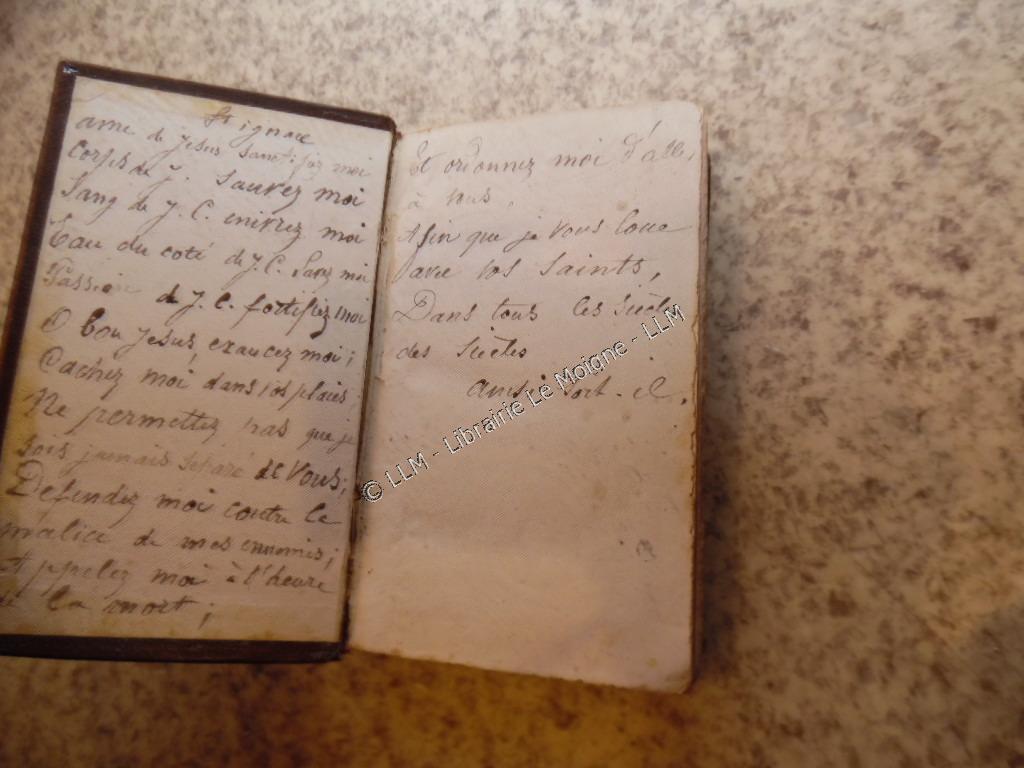 St ignace
ame de Jesus sanctifiez moi
Corps de J. Sauvez moi
Sang de J. C. enivrez moi
Eau du coté de J. C. lavez moi
Passion de J. C. fortifiez moi
O bon Jesus exaucez moi ;
Cachez moi dans vos plaies
Ne permettez pas que je
sois jamais separé de Vous ;
Defendez moi contre le
malice de mes ennemis ;
Appelez moi à l'heure
de la mort ;
Et ordonnez moi d'aller
a vous,
Afin que je vous loue
avec vos saints,
Dans tous les siècles
des siècles
ainsi soit-il.
© LLM - Librairie Le Moigne - LLM